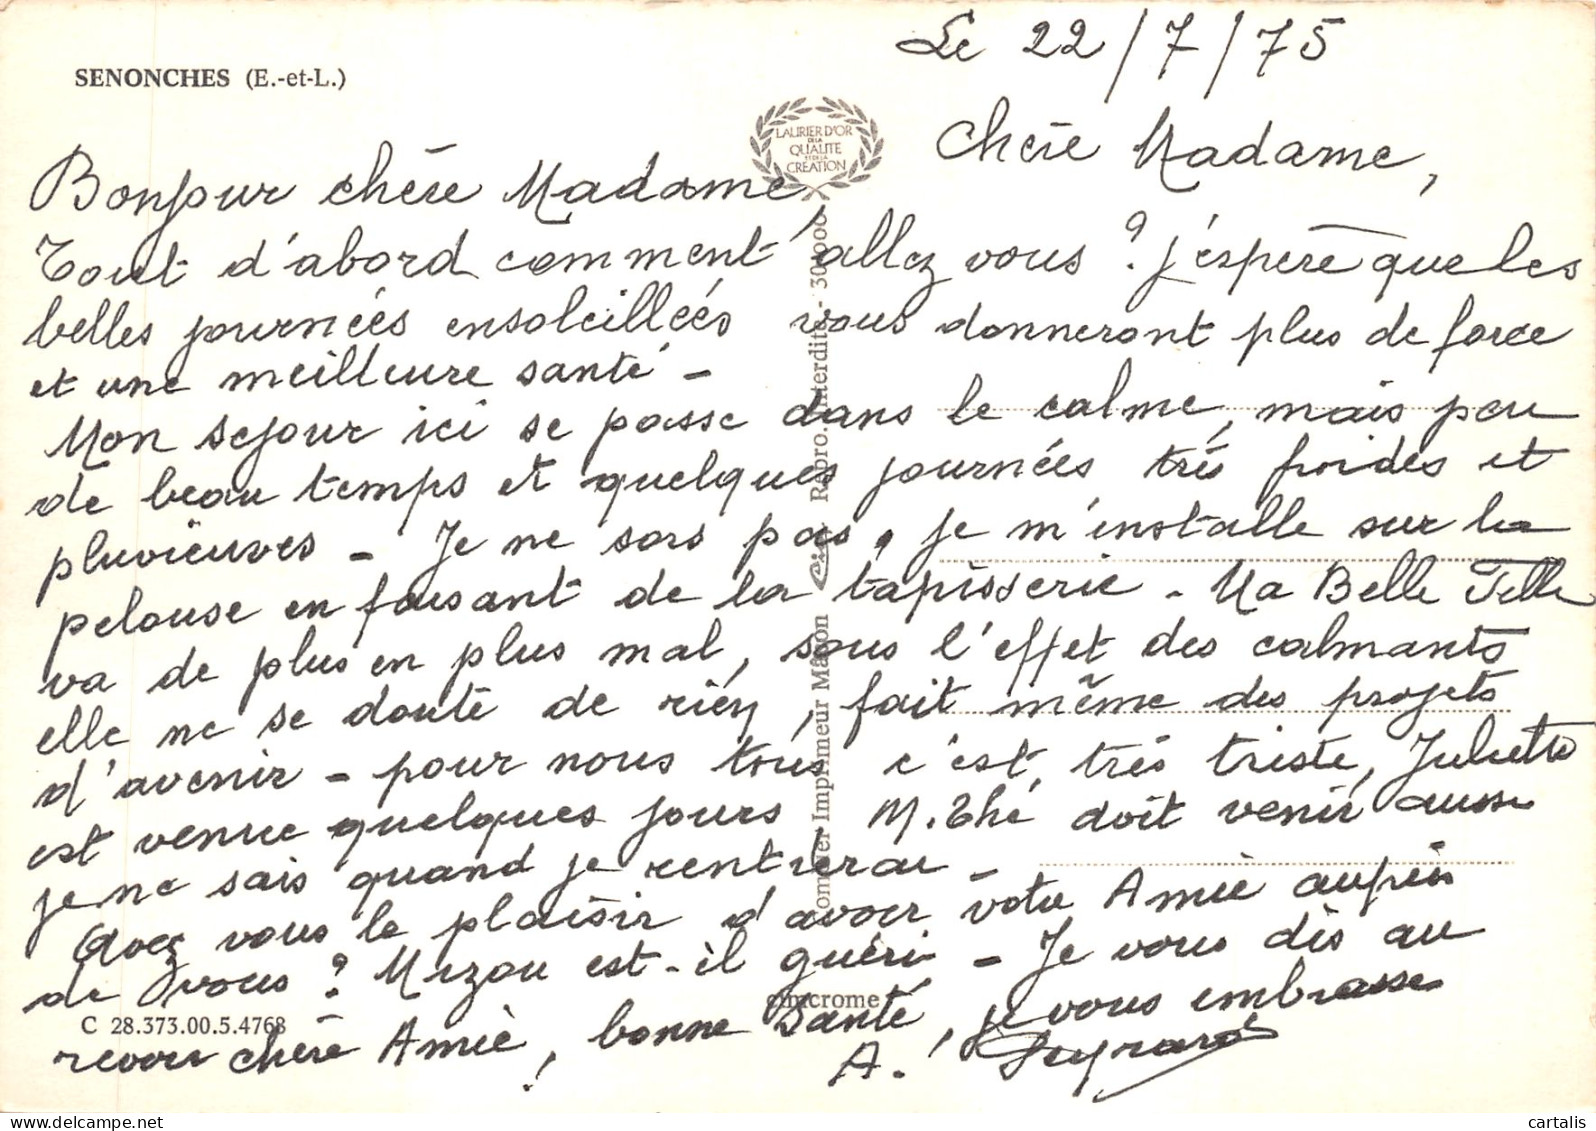 Le 22/7/75
SENONCHES (E.-et-L.)
LAURIER D'OR
DE LA
QUALITE
ET DE LA
CREATION
Chère Madame,
Bonjour chère Madame,
Tout d'abord comment allez vous ? j'espère que les
belles journées ensoleillées vous donneront plus de force
et une meilleure santé -
Mon séjour ici se passe dans le calme, mais peu
de beau temps et quelques journées très froides et
pluvieuves - Je ne sors pas, je m'installe sur la
pelouse en faisant de la tapisserie - Ma Belle Fille
va de plus en plus mal, sous l'effet des calmants
elle ne se doute de rien, fait même des projets
d'avenir - pour nous tous c'est très triste, Juliette
est venue quelques jours M. Thé doit venir aussi
je ne sais quand je rentrerai -
Avez vous le plaisir d'avoir votre Amie auprès
de vous ? Mizou est-il guéri - Je vous dis au
revoir chère Amie, bonne Santé, je vous embrasse
! A. Peyrard
C 28.373.00.5.4768
cimcrome
Imprimeur Macon
Repro. Interdite - 300000
cartalis
www.delcampe.net